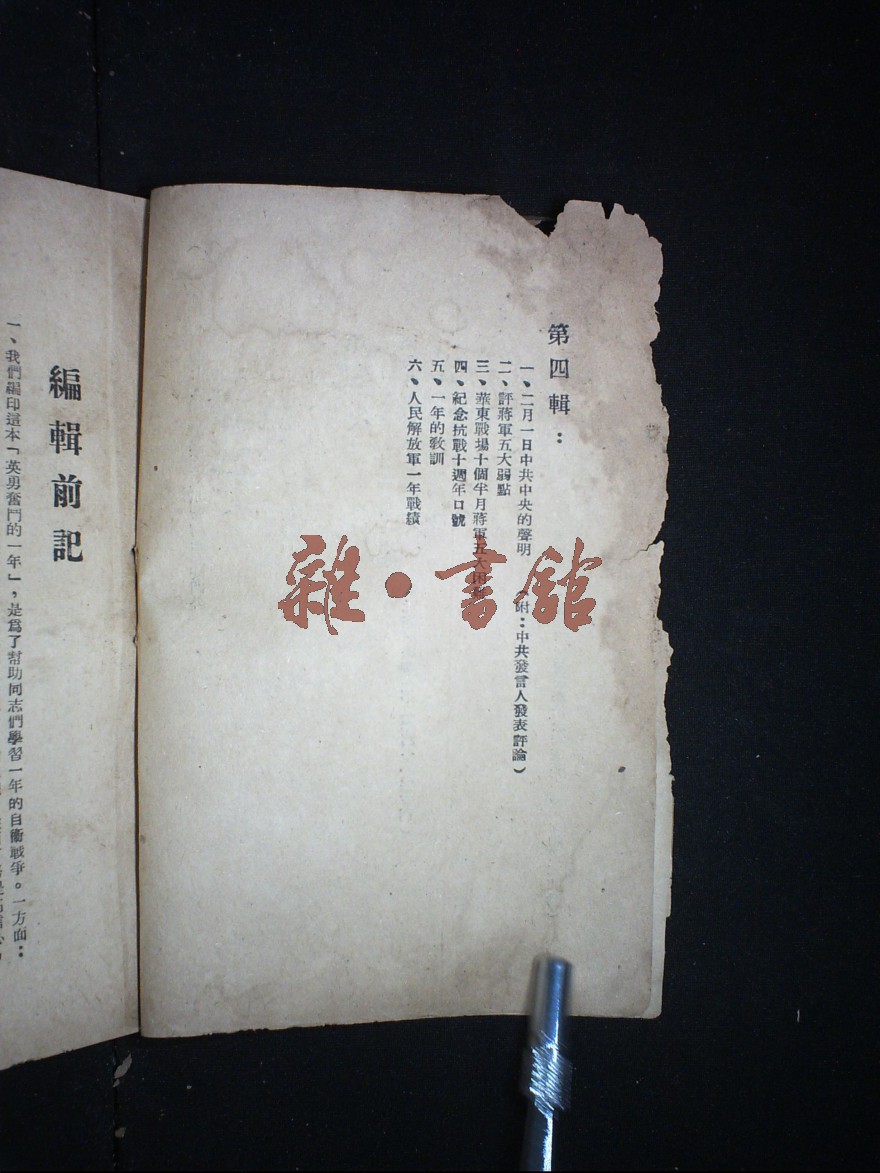 第四輯：
一、二月一日中共中央的聲明（附：中共發言人發表評論）
二、評蔣軍五大弱點
三、華東戰場十個半月蔣軍五大困難
四、紀念抗戰十週年口號
五、一年的教訓
六、人民解放軍一年戰績
編輯前記
一、我們編印這本「英勇奮鬥的一年」，是爲了幫助同志們學習一年的自衞戰爭。一方面：
雜·書館